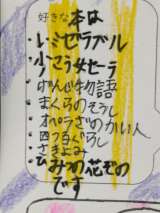 好きな本は
・レ・ミゼラブル
・小こう女セーラ
・げんじ物語
・まくらのそうし
・オペラざのかい人
・四つ百ぐらし
・さきよみ
・ひみつの花ぞの
です